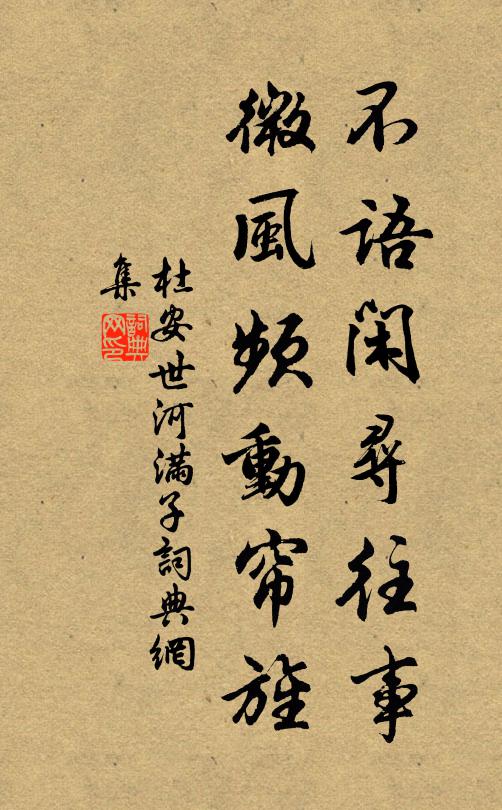 不語閑尋往事
微風頻動帘旌
杜安世河滿子詞典網
集
詞典
网印